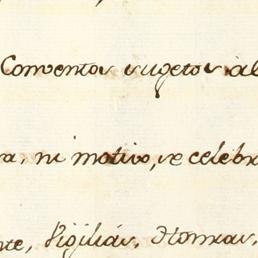 Conventos sugetos al
ra, ni motivo, se celebra
nte, Vigilias, Honras,